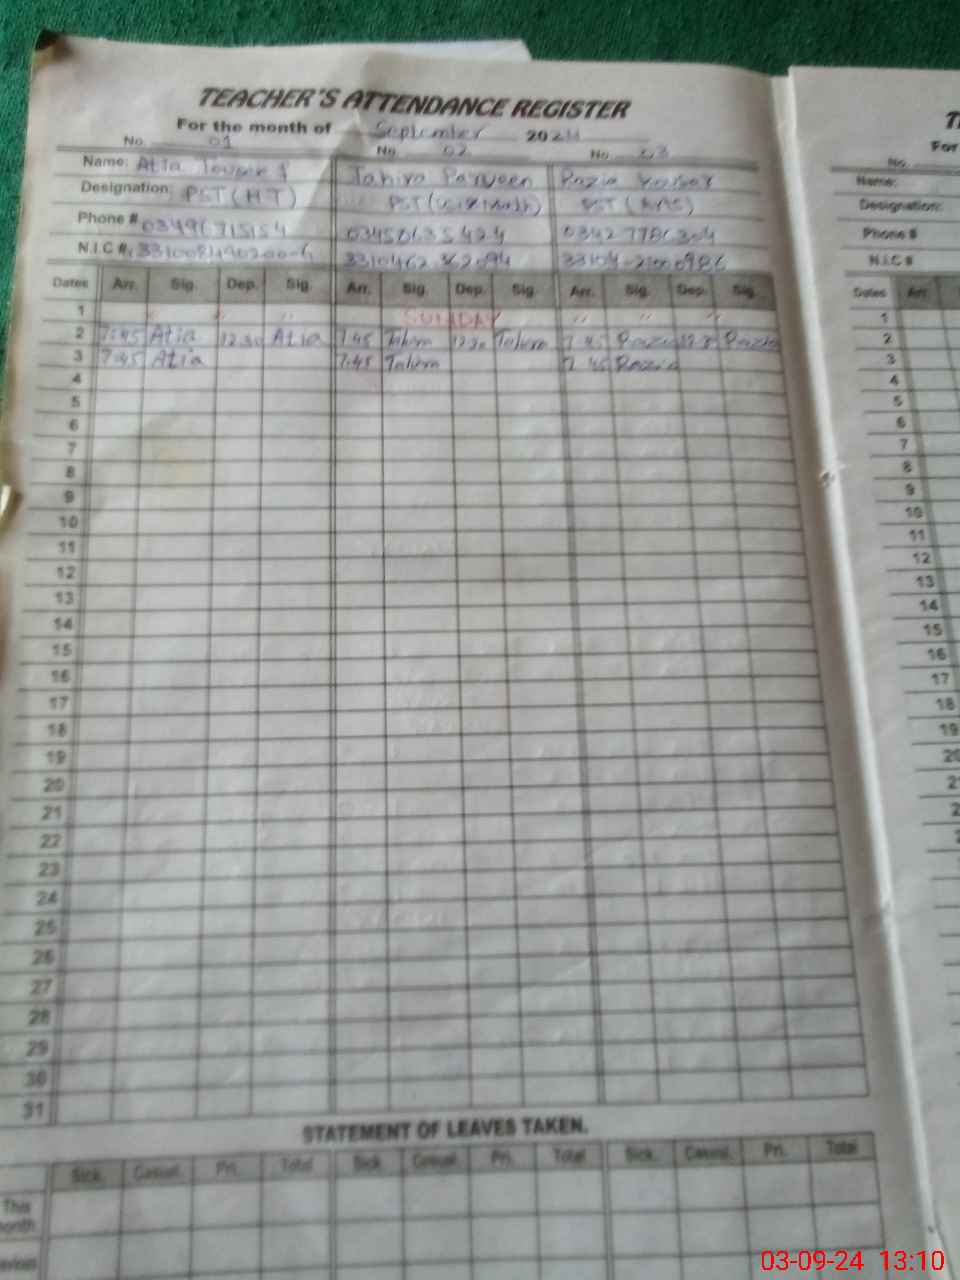 TEACHER'S ATTENDANCE REGISTER
For the month of September 2024
No. 01 No. 02 No. 03
Name: Atia Tahira Parveen Razia Kousar
Designation: PST (HT) PST ( PST (
Phone #
N.I.C #:
Dates Arr. Sig. Dep. Sig. Arr. Sig. Dep. Sig. Arr. Sig. Dep. Sig.
1 " " " SUNDAY " " "
2 7:45 Atia 12:30 Atia 7:45 Tahira 12:30 Tahira 7:45 Razia Razia
3 7:45 Atia 7:45 Tahira 7:45 Razia
4
5
6
7
8
9
10
11
12
13
14
15
16
17
18
19
20
21
22
23
24
25
26
27
28
29
30
31
STATEMENT OF LEAVES TAKEN.
Sick. Casual. Pri. Total Sick Casual. Pri. Total Sick. Casual. Pri. Total
This
month
For
No.
Name:
Designation:
Phone #
N.I.C #
Dates Arr
1
2
3
4
5
6
7
8
9
10
11
12
13
14
15
16
17
18
19
03-09-24 13:10